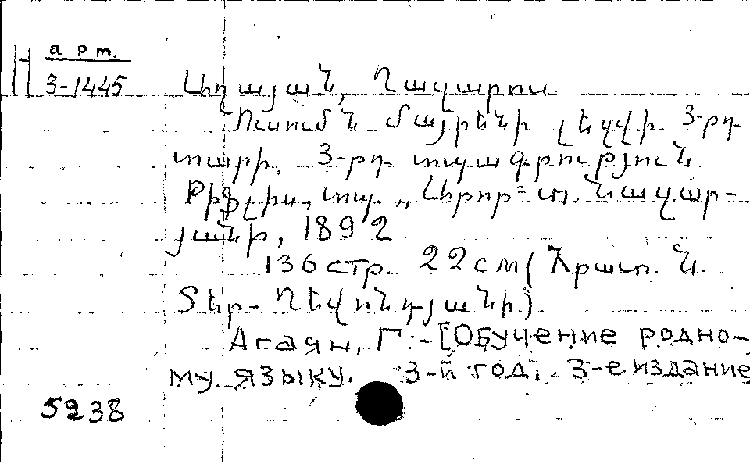 арт.
3-1445
Աղայան, Ղազարոս
Ուսումն մայրենի լեզվի 3-րդ
տարի. 3-րդ տպագրություն.
Թիֆլիս, տպ.
յանի, 1892
136 стр. 22 см (Հրատ. Ն.
Տեր-Ղևոնդյանի)
Агаян, Г. - [Обучение родно-
му языку. 3-й год. 3-е издание
5238